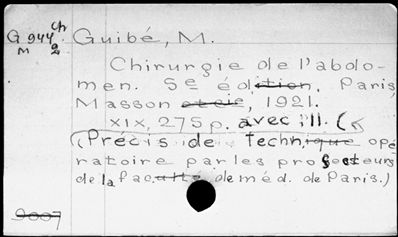 G 944 ch Guibé, M.
M 2
Chirurgie de l'abdo-
men. 5e édition, Paris
Masson et cie, 1921.
XIX, 275 p. avec ill. (
(Précis de technique opé
ratoire par les prosecteurs
de la faculté de méd. de Paris.)
9007